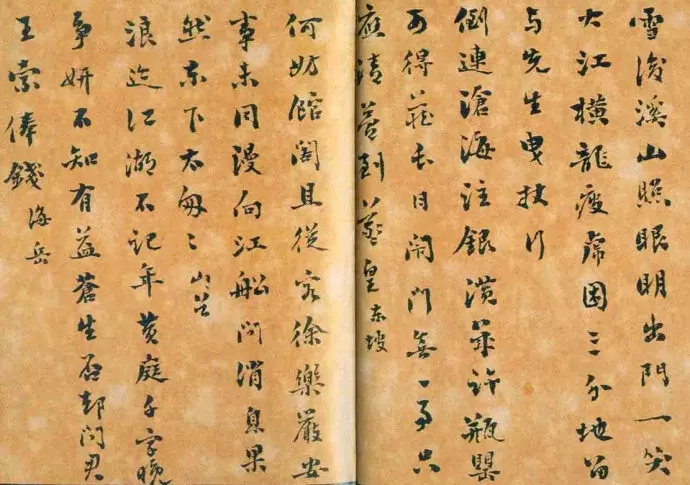 雪後溪山照眼明出門一笑
大江橫龍瘦虎困三分地留
与先生曳杖行
倒連滄海注銀潢許瓶罌
可得藏永日閉門無一事只
應清夢到羲皇 東坡
何妨館閣且從容徐樂嚴安
事未同漫向江船問消息果
然東下太匆〻 山谷
浪迹江湖不記年黃庭千字晚
爭妍不知有益蒼生否却問君
王索俸錢 海岳